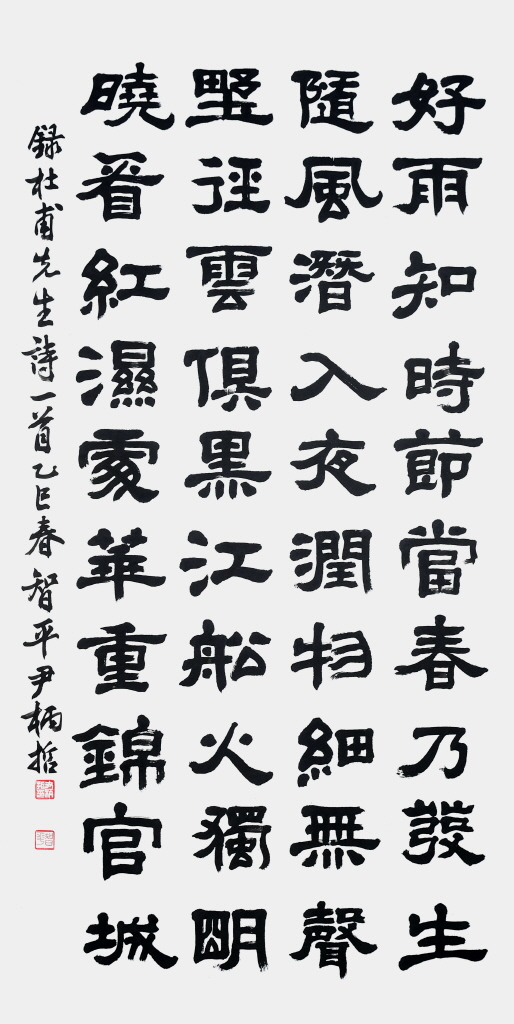 好雨知時節當春乃發生
隨風潛入夜潤物細無聲
墅徑雲俱黑江船火獨明
曉看紅濕處華重錦官城
錄杜甫先生詩一首乙巳春智平尹柄哲